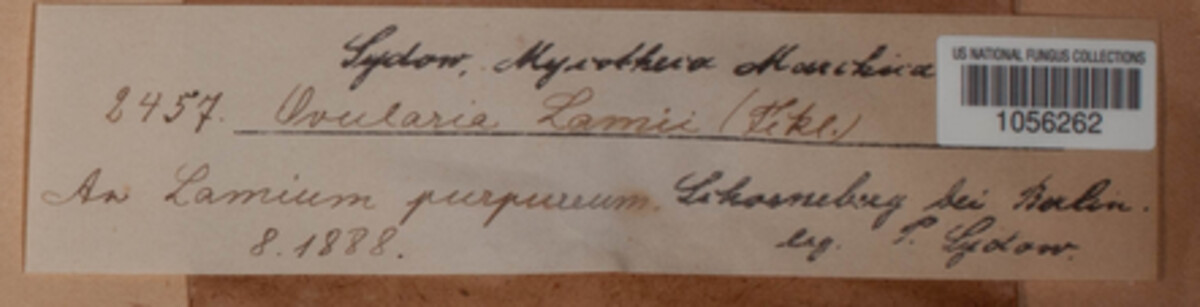 Sydow, Mycotheca Marchica
US NATIONAL FUNGUS COLLECTIONS
1056262
2457. Ovularia Lamii (Fckl.)
An Lamium purpureum. Schoeneberg bei Berlin.
8.1888. leg. P. Sydow.